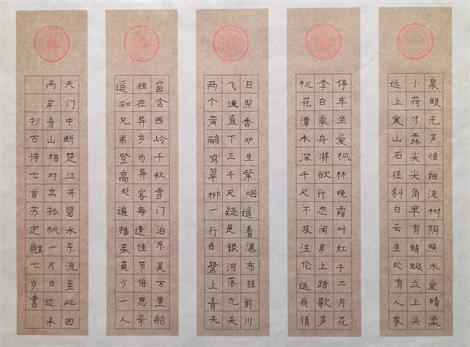 泉眼无声惜细流树阴照水爱晴柔
小荷才露尖尖角早有蜻蜓立上头
远上寒山石径斜白云生处有人家
停车坐爱枫林晚霜叶红于二月花
李白乘舟将欲行忽闻岸上踏歌声
桃花潭水深千尺不及汪伦送我情
日照香炉生紫烟遥看瀑布挂前川
飞流直下三千尺疑是银河落九天
两个黄鹂鸣翠柳一行白鹭上青天
窗含西岭千秋雪门泊东吴万里船
独在异乡为异客每逢佳节倍思亲
遥知兄弟登高处遍插茱萸少一人
天门中断楚江开碧水东流至此回
两岸青山相对出孤帆一片日边来
抄古诗七首苏定麒七岁书